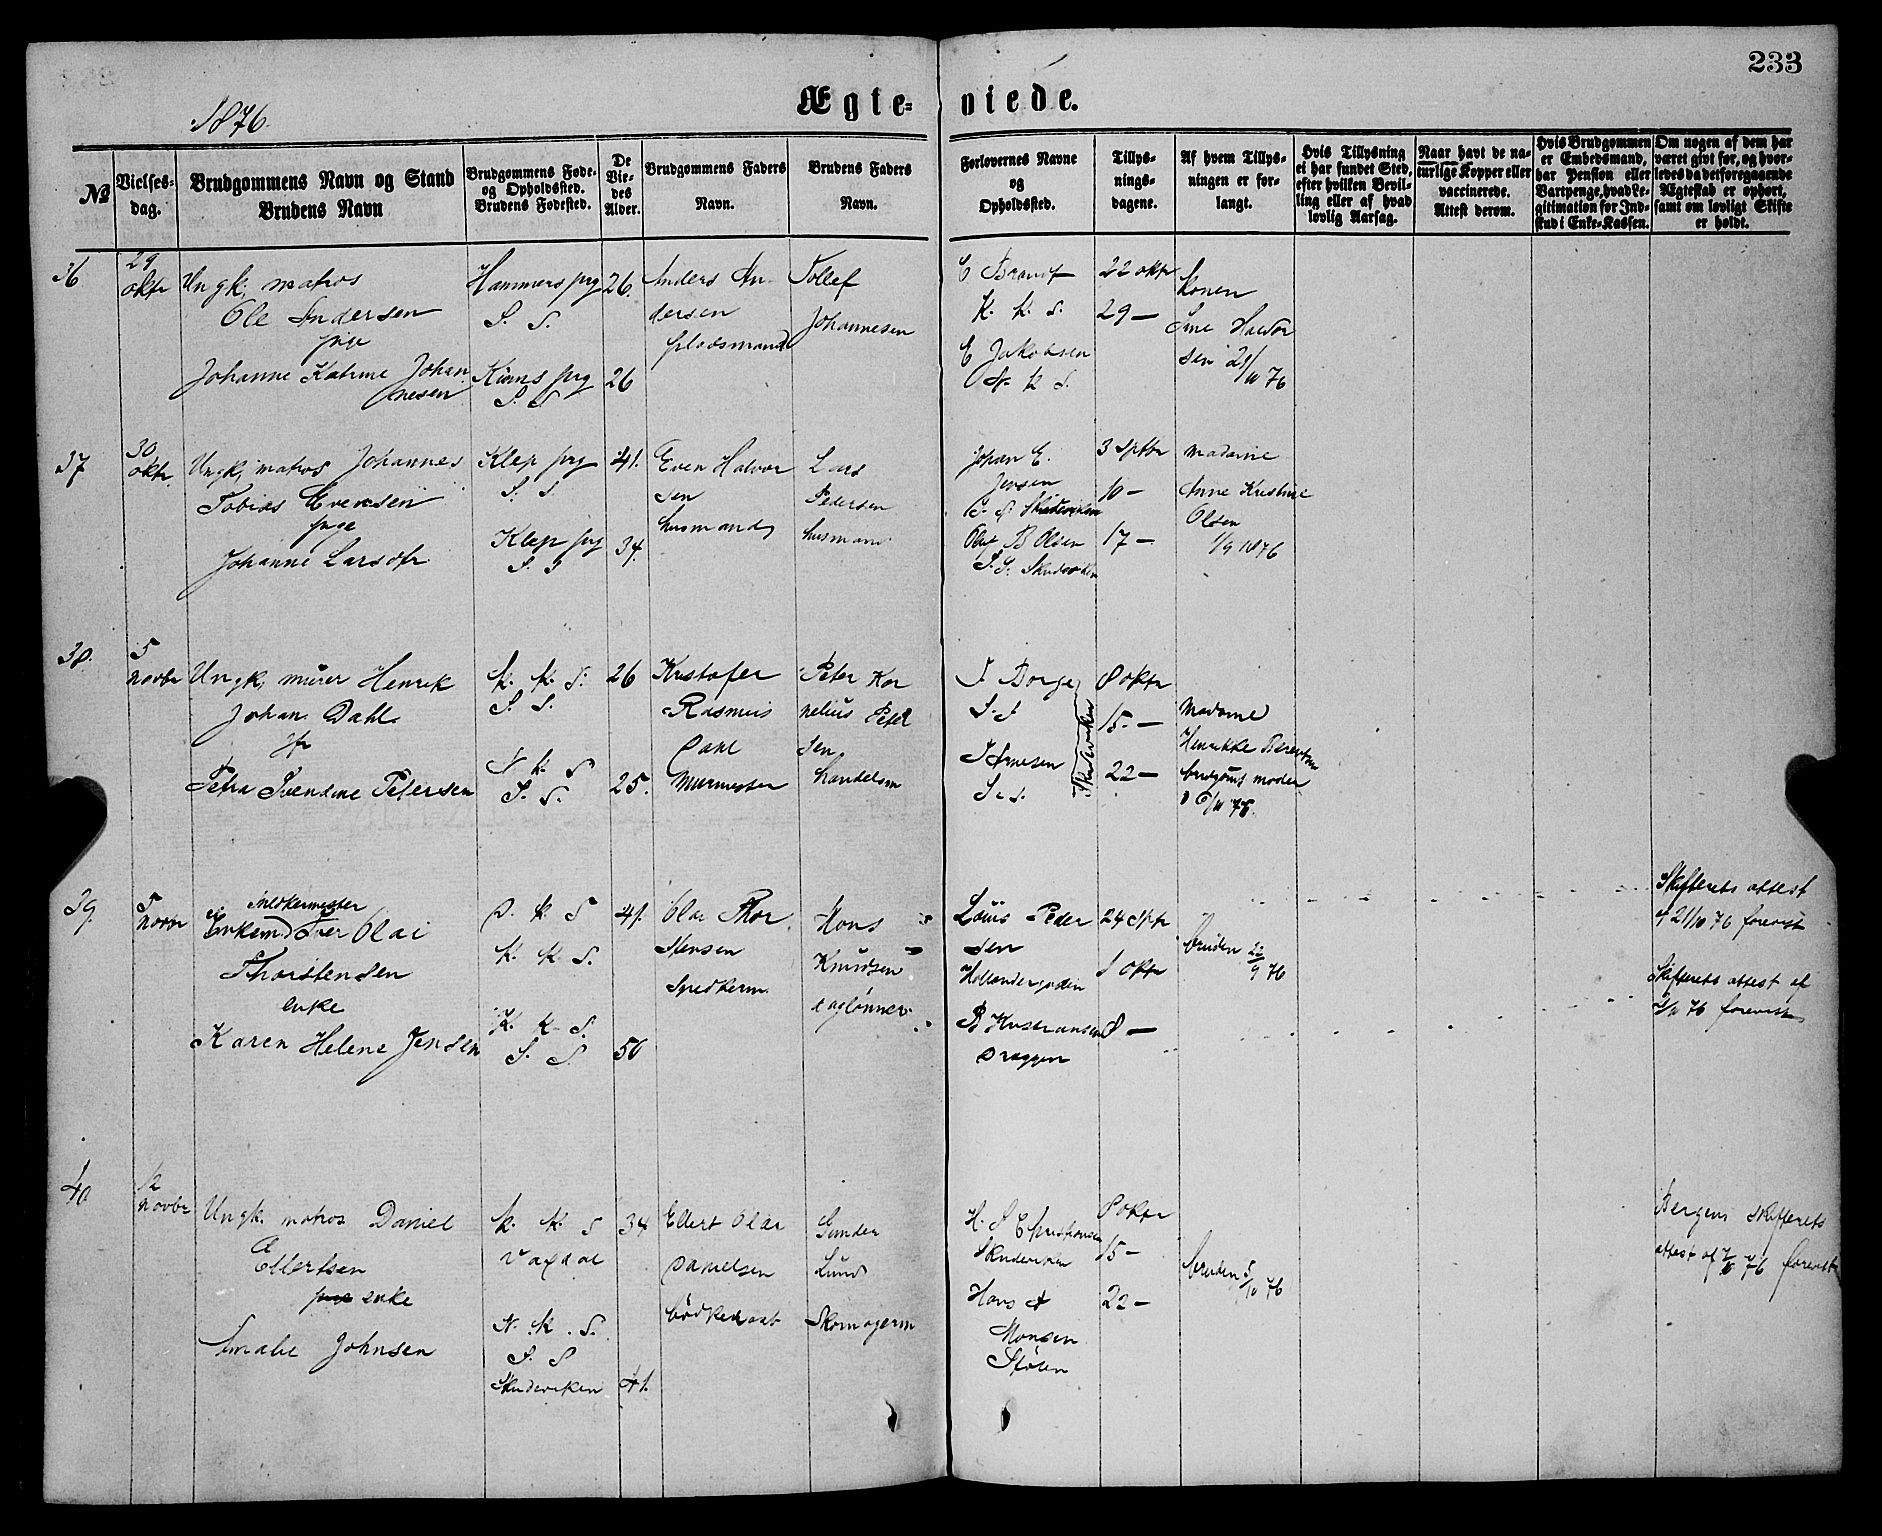 233
Ægte-viede.
1876.
No
Vielses-
dag.
Brudgommens Navn og Stand
Brudens Navn
Brudgommens Føde-
og Opholdssted.
Brudens Fødested.
De
Vie-
des
Alder.
Brudgommens Faders
Navn.
Brudens Faders
Navn.
Forlovernes Navne
og
Opholdssted.
Tillys-
nings-
dagene.
Af hvem Tillys-
ningen er for-
langt.
Hvis Tillysning
ei har fundet Sted,
efter hvilken Bevil-
ling eller af hvad
lovlig Aarsag.
Naar havt de na-
turlige Kopper eller
vaccinerede.
Attest derom.
Hvis Brudgommen
er Embedsmand,
har Pension eller
Vartpenge, hvad Le-
gitimation for Ind-
skud i Enke-Kassen.
Om nogen af dem har
været gift før, og hvor-
ledes da det foregaaende
Ægteskab er ophørt,
samt om lovligt Skifte
er holdt.
36
29
oktr
Ungk. matros
Ole Andersen
pige
Johanne Katrine Johan
nesen
Hammers prg
S. S.
Kinns prg
S. S
26.
26
Anders An
dersen
pladsmand
Tollef
Johannesen
K. k. S.
E Jakobsen
22 oktr
29 —
Konen
sen 21/10 76
37
30
oktr
Ungk. matros Johannes
Tobias Evensen
pige
Johanne Larsdtr
Klep prg
S. S
Klep prg
S. S
41.
34.
Even Halvor
sen
husmand
Lars
Pedersen
husmand
Johan E.
Jensen
Skudeviken
Oluf B Olsen
S. S. Skudeviken
3 Sptbr
10 —
17 —
madame
Anne Kristine
Olsen
1/9 1876
38.
5
novbr
Ungk. murer Henrik
Johan Dahl
pg
Petra Svendine Petersen
k. k. S.
S. S.
N k. S
S. S.
26
25.
Kristofer
Rasmus
Dahl
Murmester
Peter Kor
nelius Peter
sen
handelsm
S. S
Skudeviken
S. S.
8 oktr
15 —
22 —
Madame
Henrikke Berentsen
brudgoms moder
39.
5
novbr
snedkermester
Enkemd Iver Olai
Thorstensen
enke
Karen Helene Jensen
D. k S
K. k. S.
K. k. S.
S. S
41.
50
Olai Thor
stensen
Snedkerm.
Hans
Knudsen
taglønner
Louis Peder
sen
Hollændergaden
B Kristiansen
Dræggen
24 Sptr
1 oktr
8 —
bruden 22/9 76
Skifterets attest
af 21/10 76 forevist
Skifterets attest af
2/11 76 forevist
40.
12
novbr
Ungk. matros Daniel
Ellertsen
pige enke
Amalie Johnsen
k. k. S
Vaxdal
N. k. S.
S. S
Skudeviken
34
41.
Ellert Olai
Danielsen
bødkersvt
Gunder
Lund
Skomagerm
H. S Christiansen
Skudeviken
Hans A
Monsen
Stølen
8 oktr
15 —
22 —
bruden 5/10 76
Bergens skifterets
attest af 7/11 76 forevist